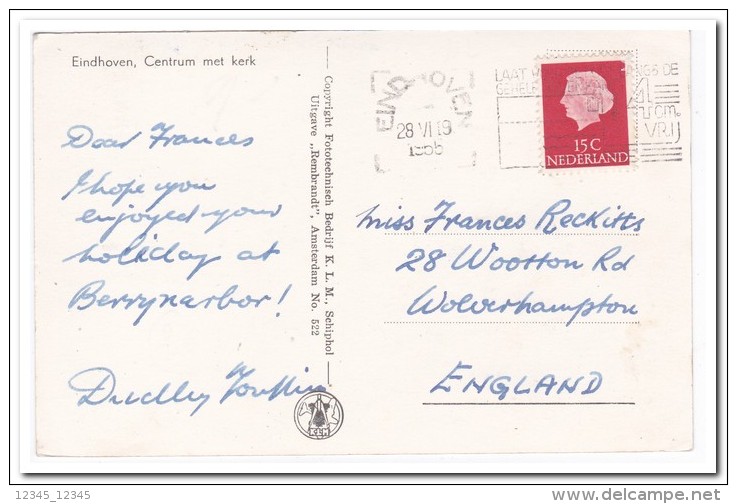 Eindhoven, Centrum met kerk
Dear Frances
I hope you
enjoyed your
holiday at
Berrynarbor!
Dudley
Copyright Fototechnisch Bedrijf K. L. M., Schiphol
Uitgave „Rembrandt", Amsterdam No. 522
EINDHOVEN
28 VI 19
1956
LAAT
DE
GEHELE
4 cm.
VRIJ
15 C
NEDERLAND
Miss Frances Reckitts
28 Wootton Rd
Wolverhampton
ENGLAND
KLM
12345_12345
delcampe.net